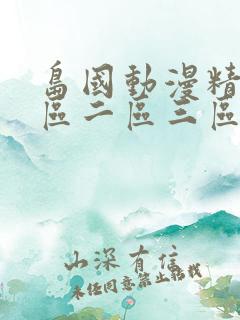 島國動漫精
區二區三區
山深有信
未經同意禁止轉載